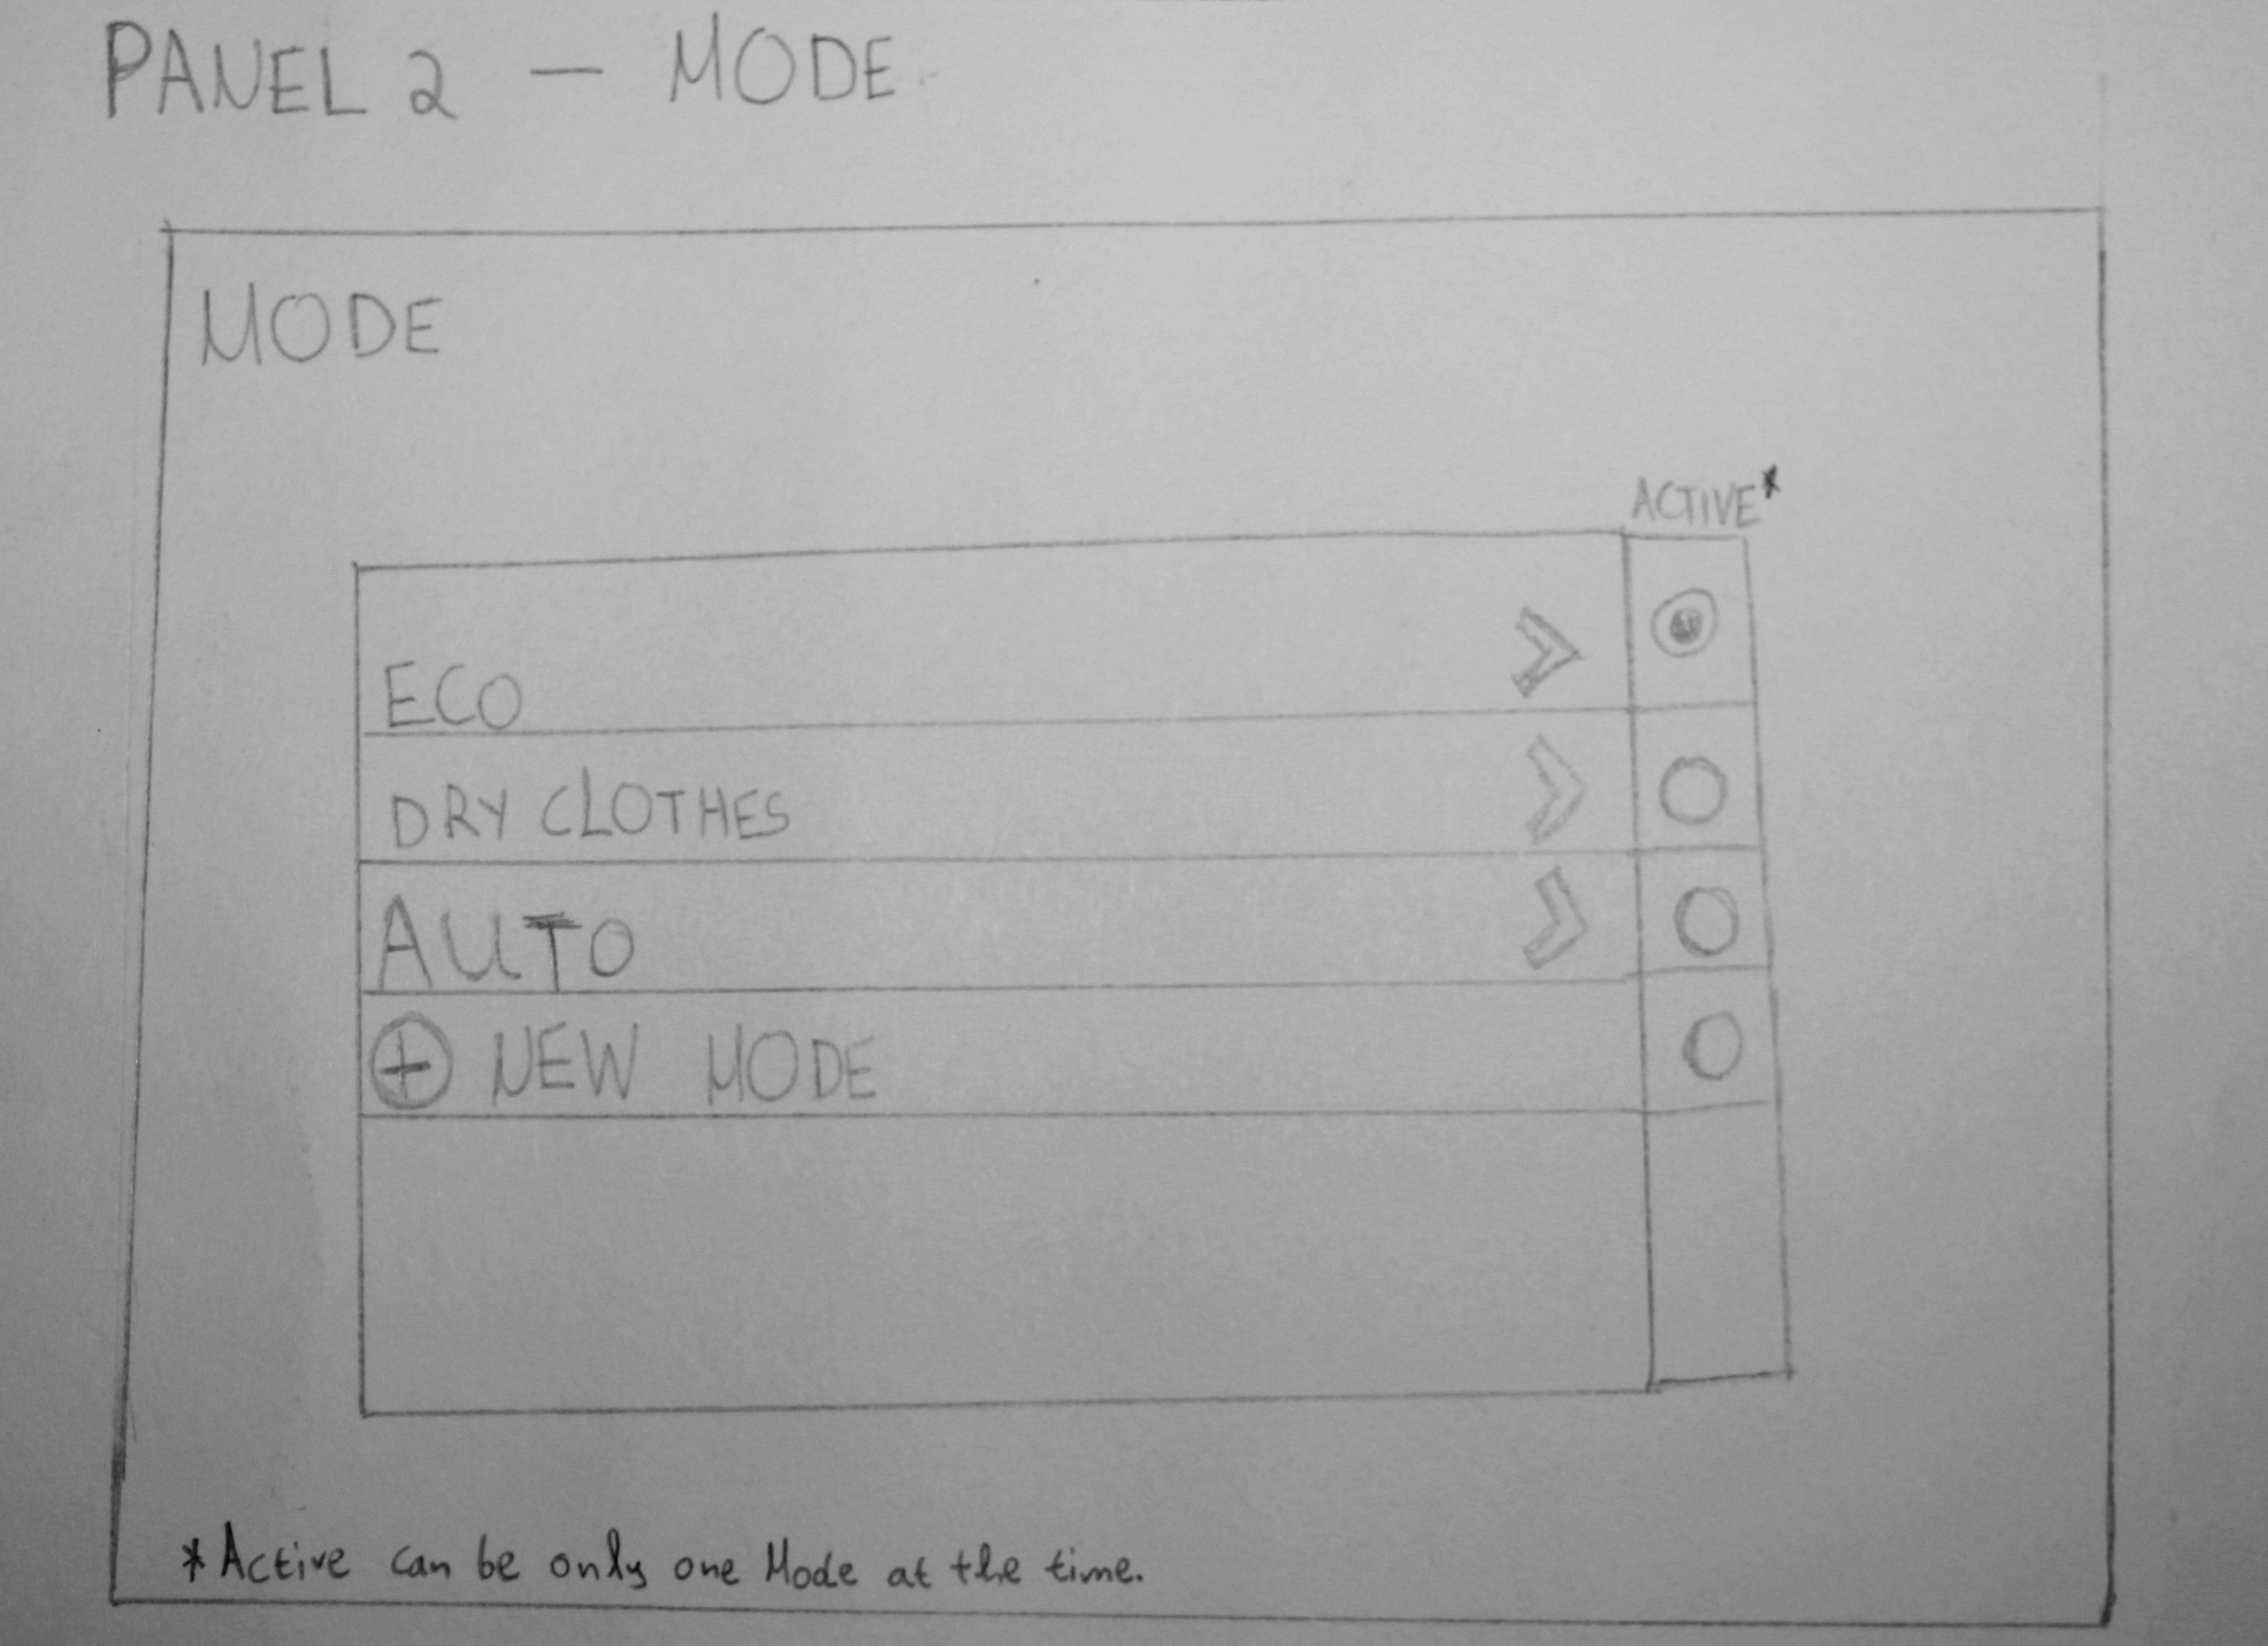 PANEL 2 — MODE
MODE
ACTIVE*
ECO
DRY CLOTHES
AUTO
+ NEW MODE
*Active can be only one Mode at the time.